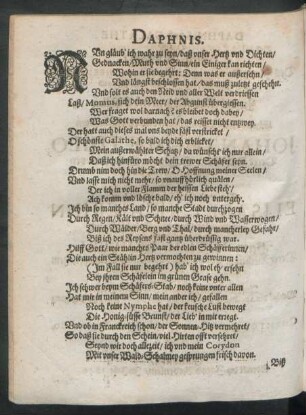 DAPHNIS.
NUn gläub' ich wahr zu seyn/ daß unser Hertz und Dichten/
Gedancken/ Muth und Sinn/ ein Einiger kan richten/
Wohin er sie begehrt: Denn was er außersehn/
Und längst beschlossen hat/ das muß zuletzt geschehn.
Und solt es auch den Neid und aller Welt verdriessen
Laß/ Momus, sich dein Meer/ der Abgunst übergiessen.
Wer fraget viel darnach/ es bleibet doch dabey/
Was Gott verbunden hat/ das reisset nicht entzwey.
Der hatt auch dieses mal uns beyde fäst verstricket/
O schönste Galathe, so bald ich dich erblicket/
Mein außerwählter Schatz/ da wünschte ich nur allein/
Daß ich hinfüro möcht dein trewer Schäfer seyn.
Drumb nim doch hin die Trew/ O Hoffnung meiner Seelen/
Und lasse mich nicht mehr/ so unauffhörlich quälen/
Der ich in voller Flamm der heissen Liebe steh/
Ach komm und läsch't bald/ eh' ich noch untergeh.
Ich bin so manches Land/ so manche Stadt durchzogen
Durch Regen/ Kält und Schnee/ durch Wind und Wasserwogen/
Durch Wälder/ Berg und Thal/ durch mancherley Gefahr/
Biß ich des Reysens fast gantz überdrüssig war.
Hilff Gott/ wie manches Paar der edlen Schäfferinnen/
Die auch ein Stählin Hertz vermochten zu gewinnen:
(Im Fall sie nur begehrt) hab' ich wol eh ersehn
Bey ihren Schäfelein im grünen Grase gehn.
Ich schwer beym Schäfers-Stab/ noch keine unter allen
Hat mir in meinem Sinn/ mein ander ich/ gefallen
Noch keine Nymphe hat/ der keusche Lust bewegt
Die Honig-süsse Brunst/ der Lieb' in mir erregt.
Und ob in Franckreich schon/ der Sonnen-Hitz vermehret/
So daß sie durch den Schein/ viel Hirten offt versehret/
Seynd wir doch allezeit/ ich und mein Corydon
Mit unser Wald-Schalmey gesprungen frisch davon.